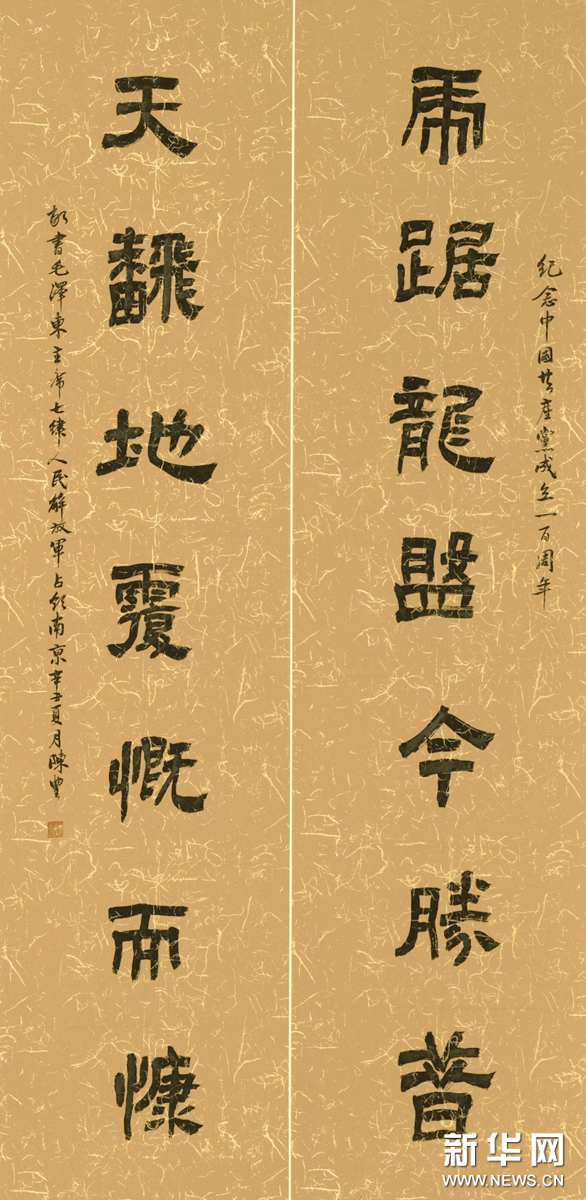 紀念中國共產黨成立一百周年
虎踞龍盤今勝昔
天飜地覆慨而慷
敬書毛澤東主席七律人民解放軍占領南京辛丑夏月陳豐
新华网
WWW.NEWS.CN